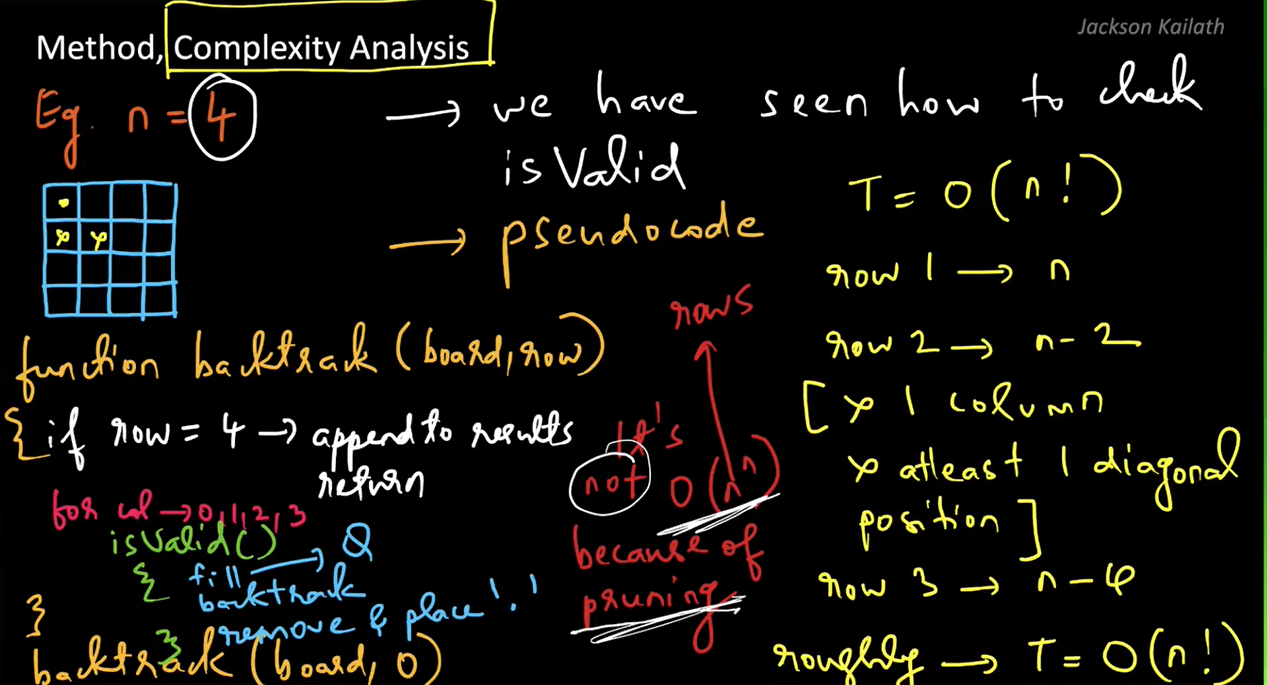 Jackson Kailath
Method, Complexity Analysis
Eg. n = 4
→ we have seen how to check
isValid
→ pseudocode
function backtrack (board, row)
{ if row = 4 → append to results
return
for col → 0, 1, 2, 3
isValid()
{ fill → Q
backtrack
remove & place '.'
}
}
backtrack (board, 0)
rows
It's
not O(nⁿ)
because of
pruning
T = O(n!)
row 1 → n
row 2 → n - 2
[ x 1 column
x atleast 1 diagonal
position ]
row 3 → n - 4
roughly → T = O(n!)